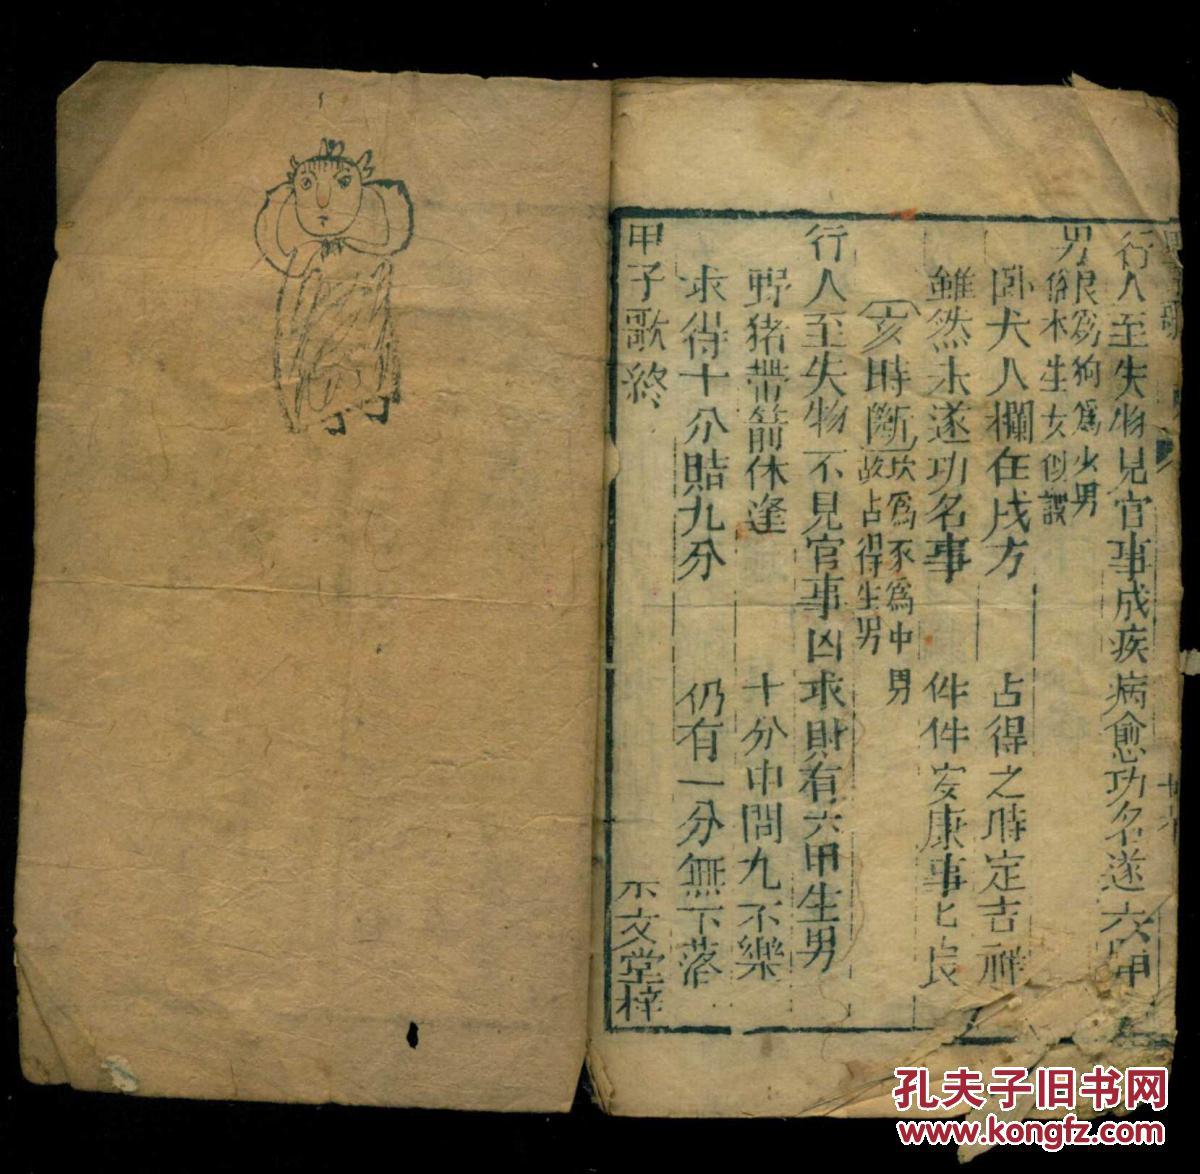 行人至失物見官事成疾病愈功名遂六甲生
男 艮爲狗爲少男
係木生女似誤
臥犬入欄在戌方 占得之時定吉祥
雖然未遂功名事 件件安康事七良
亥時斷 坎爲豕爲中男
故占得生男
行人至失物不見官事凶求財有六甲生男
野猪帶箭休逢 十分中間九不樂
求得十分賠九分 仍有一分無下落
甲子歌終
文堂梓
孔夫子旧书网
www.kongfz.com